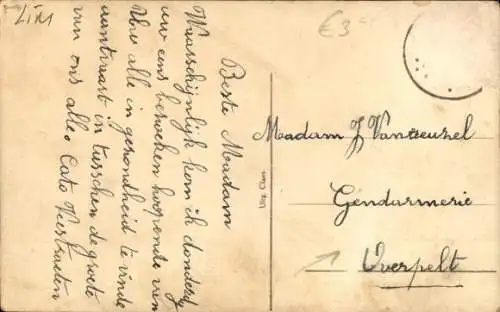 Lim
€3
Beste Madam
Waarschijnlijk kom ik donderdag
uw eens bezoeken hoopende van
U alle in gezondheid te vinde
aantvaart in tusschen de groete
van ons alle Cato Verstraeten
Madam J Vanreusel
Gendarmerie
Overpelt